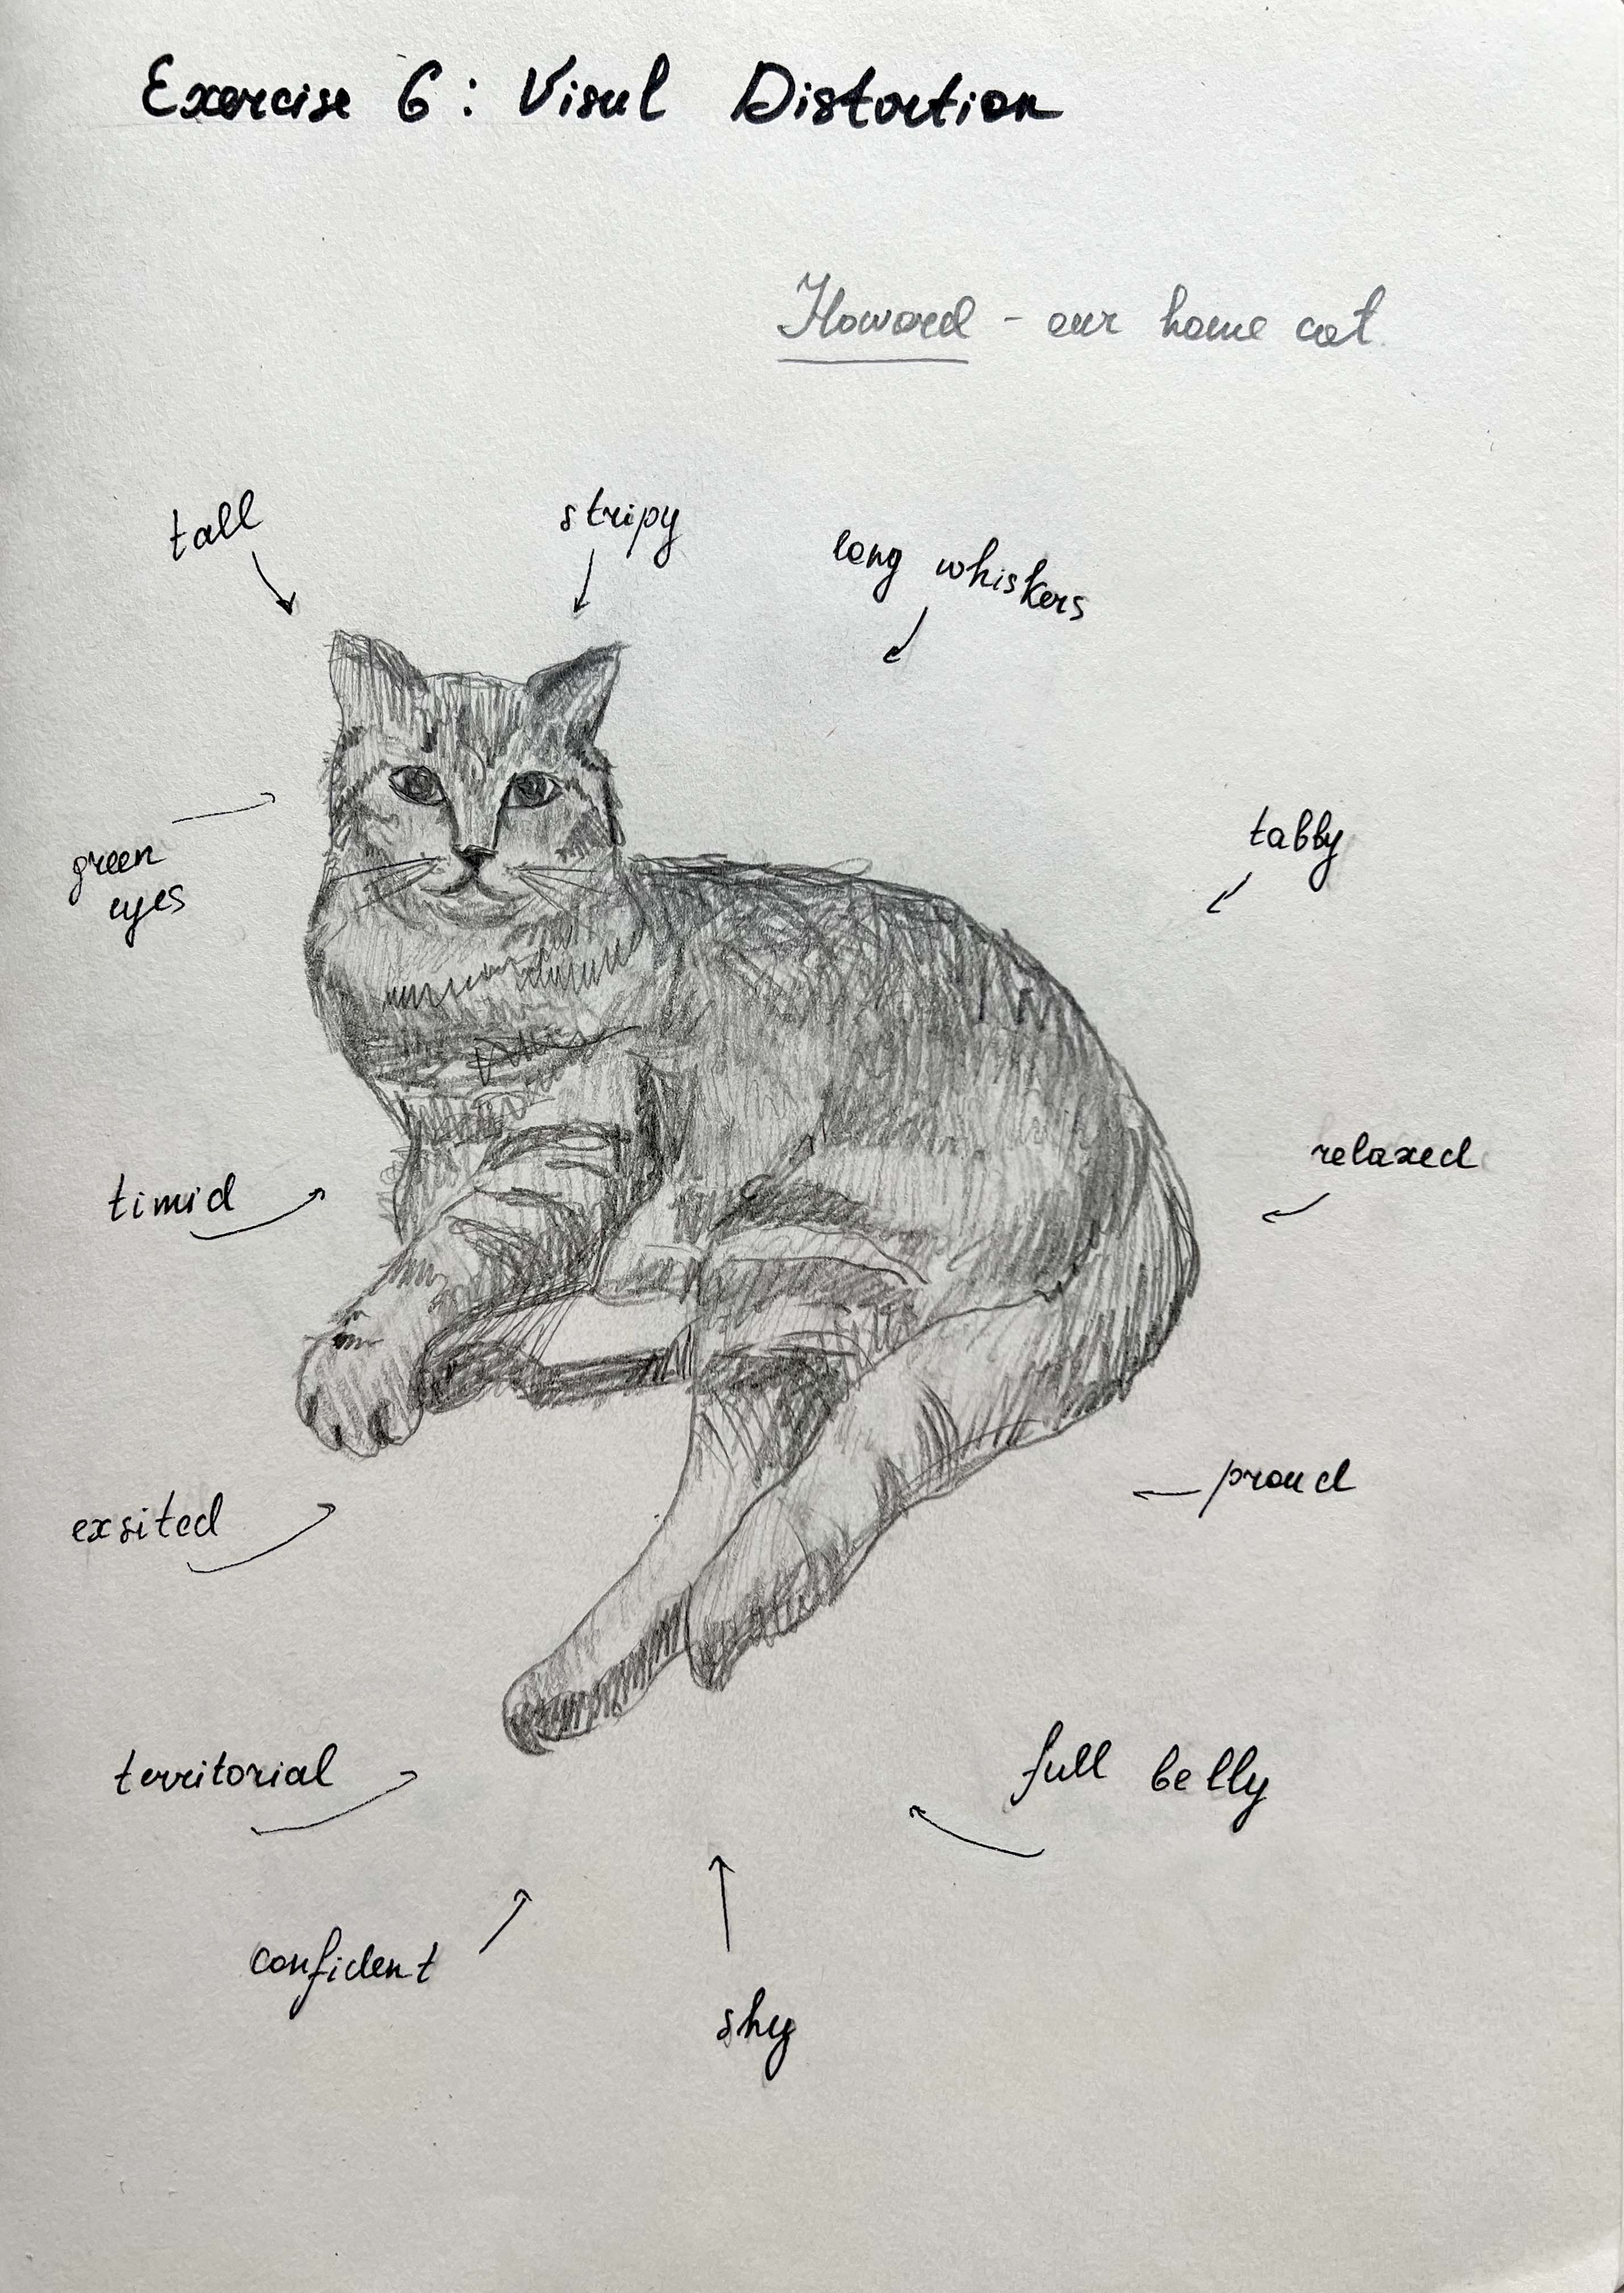 Exercise 6: Visul Distortion
Howard - our home cat
tall
stripy
long whiskers
green
eyes
tabby
timid
relaxed
exsited
proud
territorial
full belly
confident
shy